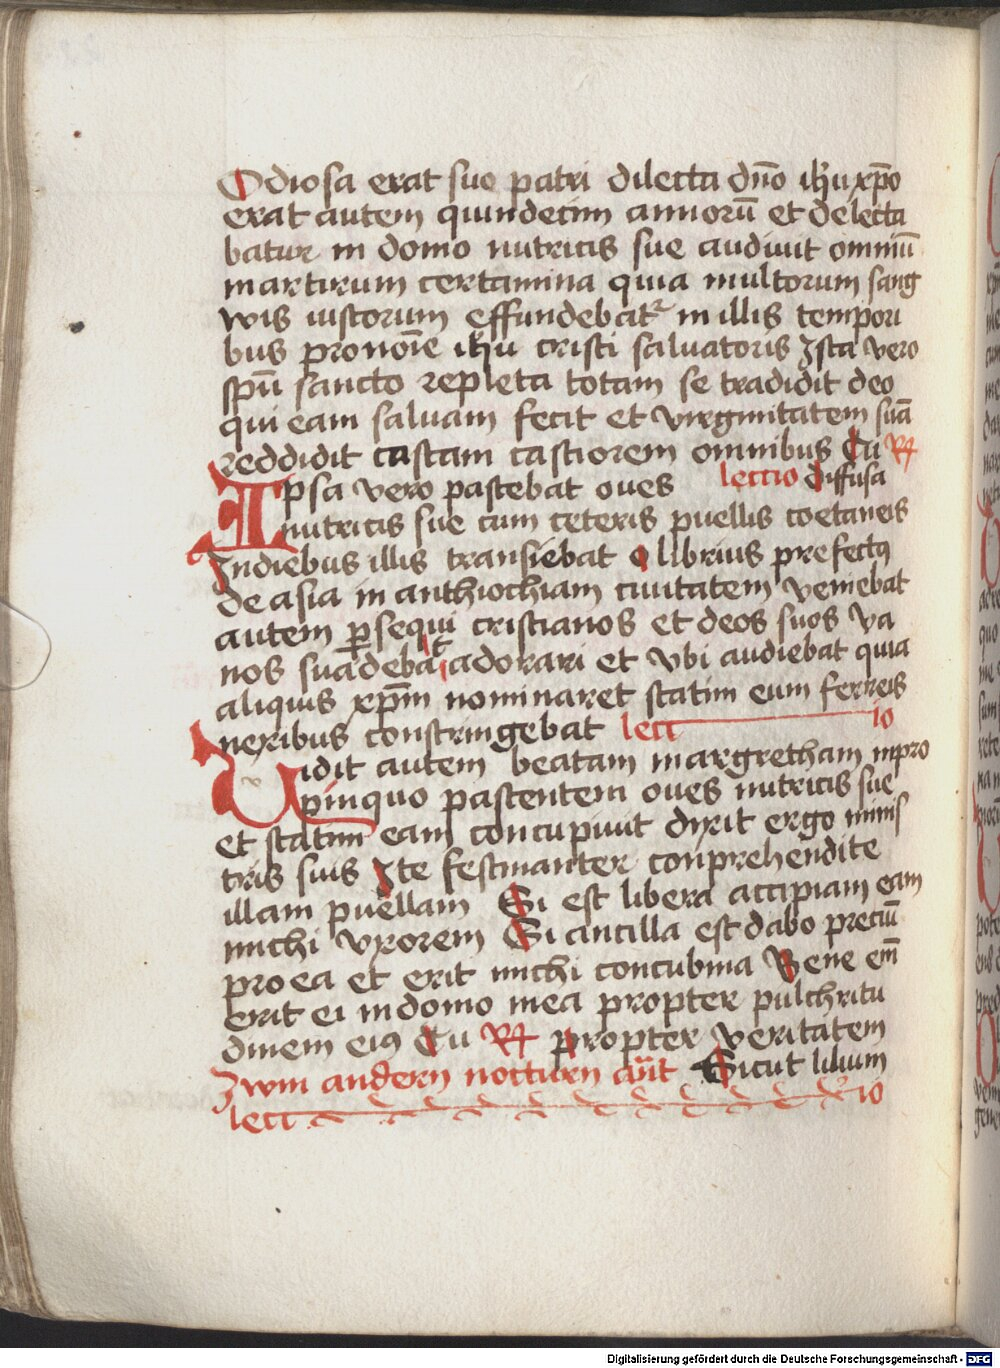 Odiosa erat suo patri dilecta dño ihu xp̄o
erat autem quindecim annorū et delecta
batur in domo nutricis sue audiuit omniū
martirum certamina quia multorum sang
wis iustorum effundebat᷑ in illis tempori
bus pro noīe ihu cristi saluatoris Ista vero
spū sancto repleta totam se tradidit deo
qui eam saluam fecit et virginitatem suā
reddidit castam castiorem omnibus Tu R
Ipsa vero pascebat oues lectio diffusa
nutricis sue cum ceteris puellis coetaneis
Indiebus illis transiebat olibrius prefectꝯ
de asia in anthiochiam ciuitatem veniebat
autem ꝑsequi cristianos et deos suos va
nos suadebat adorari et vbi audiebat quia
aliquis xp̄m nominaret statim eum ferreis
nexibus constringebat lectio
Uidit autem beatam margretham in pro
pinquo pascentem oues nutricis sue
et statim eam concupiuit dixit ergo minis
tris suis Ite festinanter conprehendite
illam puellam Si est libera accipiam eam
michi vxorem Si ancilla est dabo preciū
pro ea et erit michi concubina Bene em̄
erit ei in domo mea propter pulchritu
dinem eiꝯ Tu R propter veritatem
Zwm andern nocturn āūt Sicut lilium
lectio
Digitalisierung gefördert durch die Deutsche Forschungsgemeinschaft - DFG